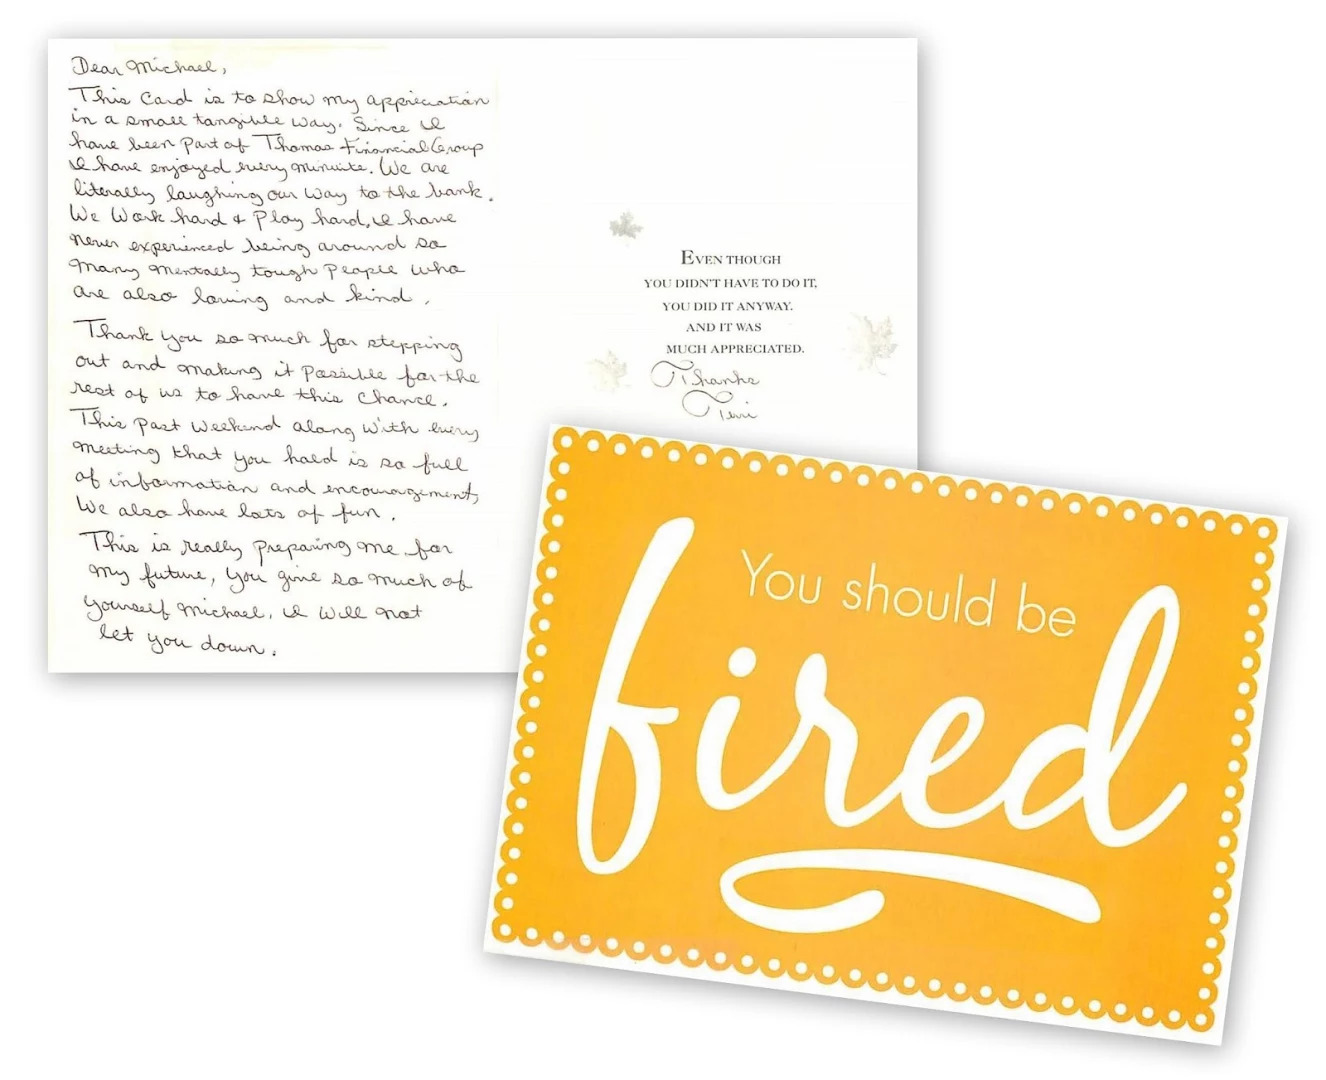 Dear Michael,
This Card is to show my appreciation
in a small tangible way. Since I
have been part of Thomas Financial Group
I have enjoyed every minute. We are
literally laughing our way to the bank.
We Work hard & Play hard, I have
never experienced being around so
many mentally tough People who
are also loving and kind.
Thank you so much for stepping
out and making it Possible for the
rest of us to have this Chance.
This Past Weekend along with every
meeting that you hald is so full
of information and encouragement,
We also have lots of fun.
This is really preparing me for
my future, you give so much of
yourself Michael, I will not
let you down.
EVEN THOUGH
YOU DIDN'T HAVE TO DO IT,
YOU DID IT ANYWAY.
AND IT WAS
MUCH APPRECIATED.
Thanks
Teri
You should be
fired